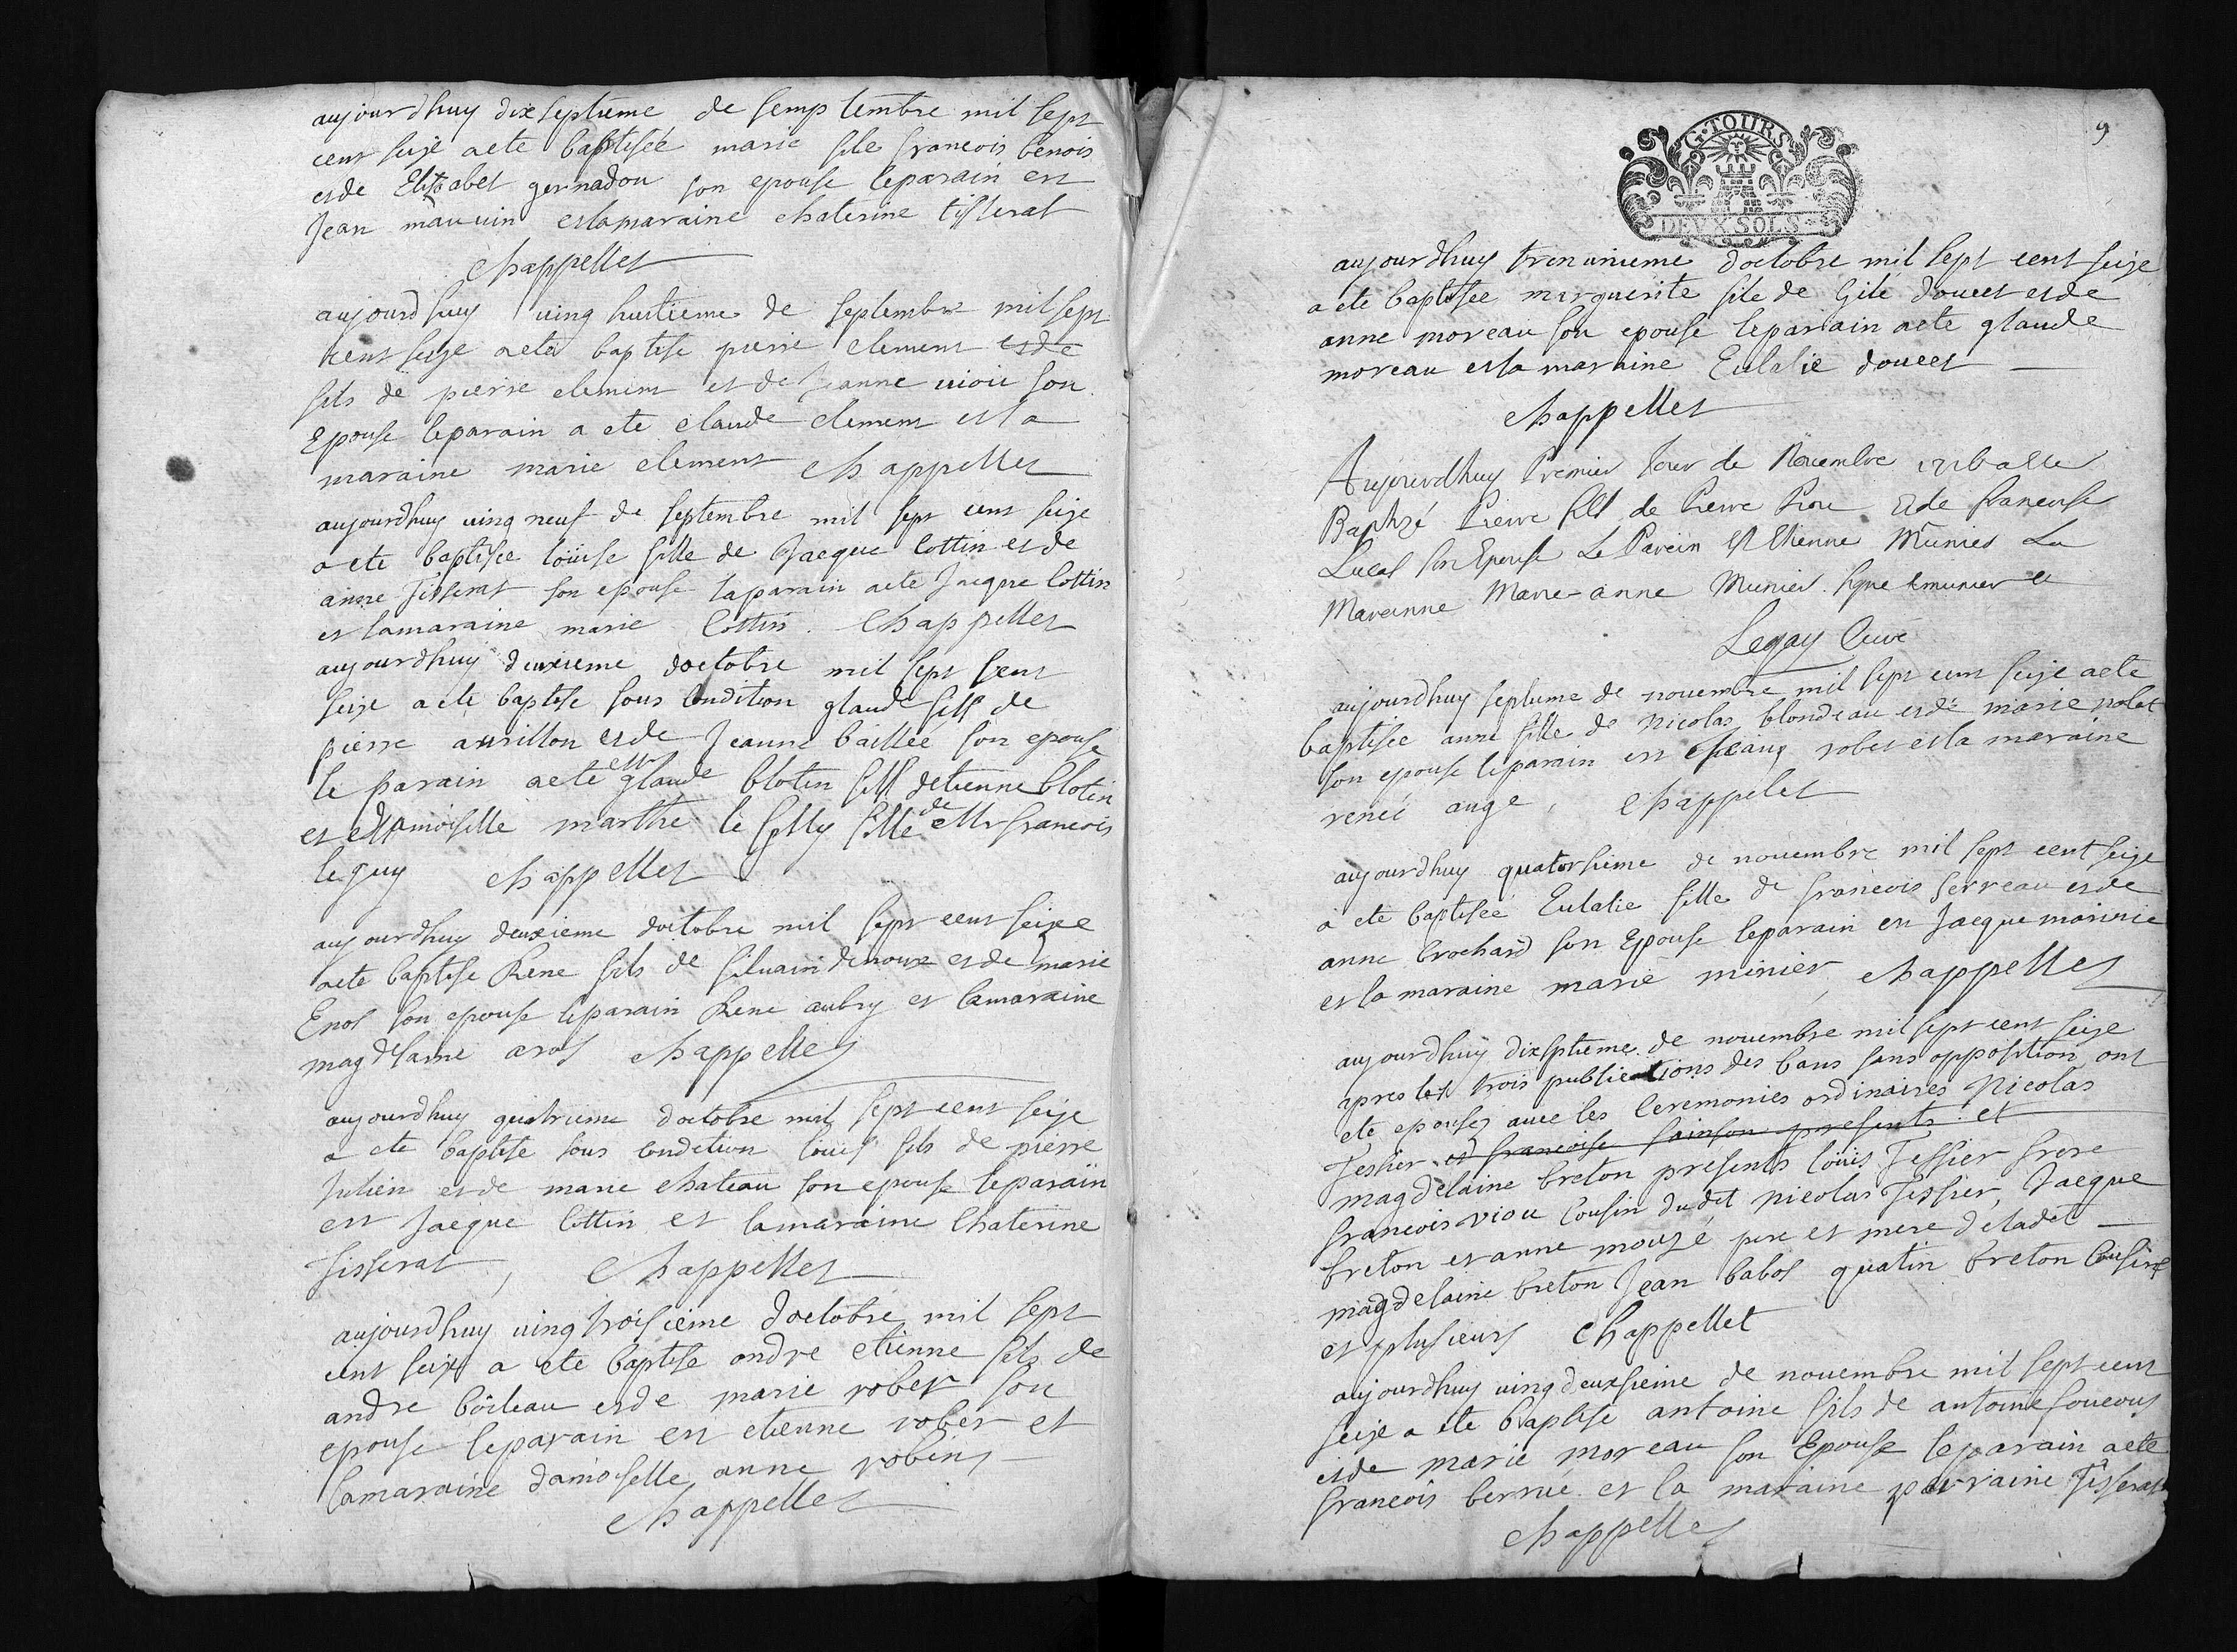 aujourdhuy dixseptieme de semptembre mil sept
cent seize a ete baptisée marie file francois benois
et de Elisabet gernadou son epouse le parain est
Jean mauvin et la maraine chaterine tisserat
chappellet
aujourdhuy ving huitieme de septembre mil sept
cent seize a ete baptise pierre clement et de
fils de pierre clement et de Jeanne son
Epouse le parain a ete claude clement et la
maraine marie clement chappellet
aujourdhuy ving neuf de septembre mil sept cent seize
a ete baptisée loüise fille de Jacque Cottin et de
anne Tisserat son epouse laparain a ete Jacque Cottin
et lamaraine marie Cottin. Chappellet
aujourdhuy deuxieme doctobre mil sept sent
seize a ete baptise sous Condition glaude fils de
pierre aurillon et de Jeanne baillée son epouse
le parain a ete glaude blotin fils detienne blotin
et marthe le fille de Mr francois
le guy chappellet
aujourdhuy deuxieme doctobre mil sept cent seize
a ete baptise Rene fils de siluain denoux et de marie
Enos son epouse leparain Rene aubry et lamaraine
magdelaine chappellet
aujourdhuy quatrieme doctobre mil sept cent seize
a ete baptise sous condition loüis fils de pierre
Julien et de marie chateau son epouse leparain
est Jacque Cottin et lamaraine Chaterine
Tisserat, Chappellet
aujourdhuy ving troisieme doctobre mil sept
cent seize a ete baptise andre etienne fils de
andre boileau et de marie rober son
epouse leparain est etienne rober et
lamaraine damoiselle anne robin
chappellet
9
G. TOURS
DEVX SOLS
aujourdhuy trenunieme doctobre mil sept cent seize
a ete baptisée marguerite file de Gile doucet et de
anne moreau son epouse leparain a ete glaude
moreau et la maraine Eulalie doucet
chappellet
Aujourdhuy Premier Jour de Nouembre
Baptizé Pierre fils de Pierre et de francoise
Lucas son Epouse Le Parein est Etienne Munier La
Mareinne Marie-anne Munier.
Legay Curé
aujourdhuy septieme de nouembre mil sept cent seize a ete
baptisée anne fille de Nicolas blondeau et de marie
son epouse le parain est rober et la maraine
renée auge, chappelet
aujourdhuy quatorsieme de nouembre mil sept cent seize
a ete baptisée Eulalie fille de francois serreau et de
anne brochard son Epouse leparain est Jacque
et la maraine marie minier, chappellet
aujourdhuy dixseptieme de nouembre mil sept cent seize
apres les trois publications des bans sans opposition ont
ete epousez auec les Ceremonies ordinaires Nicolas
Tessier et francoise sainson presents et
magdelaine breton presents loüis Tessier frere
francois viou Cousin dudit nicolas Tissier, Jacque
breton et anne mouzé pere et mere deladet
magdelaine breton Jean babos quatin breton Cousins
et plusieurs Chappellet
aujourdhuy ving deuxsieme de nouembre mil sept cent
seize a ete baptise antoine fils de antoine
et de marie moreau son Epouse leparain a ete
francois et la maraine Tisserat
chappellet